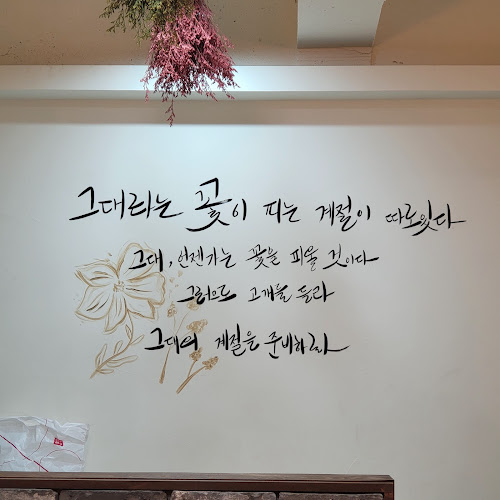 그대라는 꽃이 피는 계절이 따로있다
그대, 언젠가는 꽃을 피울 것이다
그러므로 고개를 들라
그대의 계절을 준비하라